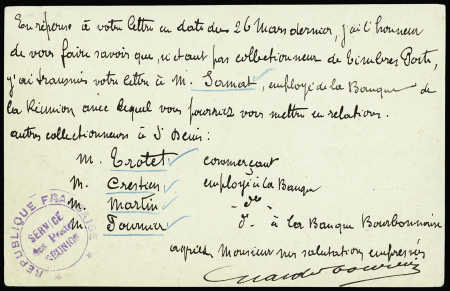 En réponse à votre lettre en date du 26 Mars dernier, j'ai l'honneur
de vous faire savoir que, n'étant pas collectionneur de timbres Poste,
j'ai transmis votre lettre à M. Samat, employé de la Banque de
la Réunion avec lequel vous pourrez vous mettre en relations.
autres collectionneurs à St Denis :
M. Trotet commerçant
M. Crestien employé à la Banque
M. Martin - do -
M. Fournier do - à la Banque Bourbonnaise
agréez Monsieur mes salutations empressées
RÉPUBLIQUE FRANÇAISE
SERVICE
des Postes
RÉUNION